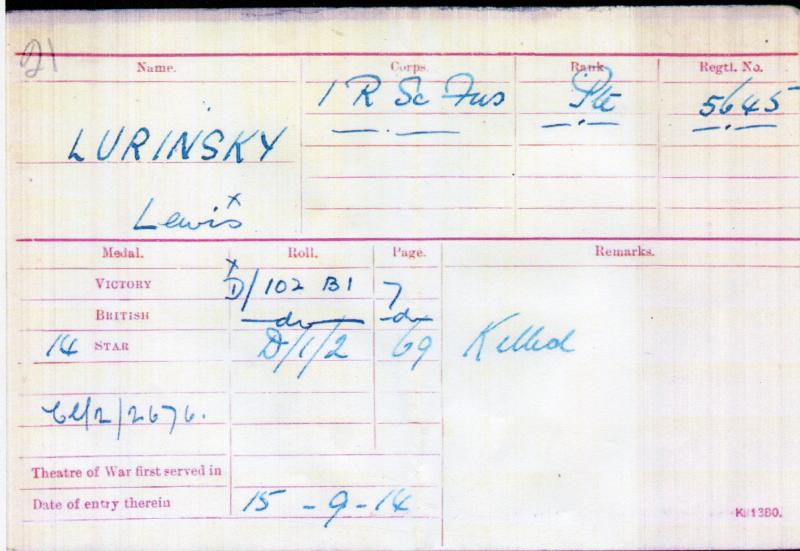 21
Name. Corps. Rank Regtl. No.
1 R Sc Fus Pte 5645
LURINSKY
Lewis x
Medal. Roll. Page. Remarks.
VICTORY x D/102 B1 7
BRITISH do do
14 STAR D/1/2 69 Killed
/2/2676.
Theatre of War first served in
Date of entry therein 15-9-14
K 1380.